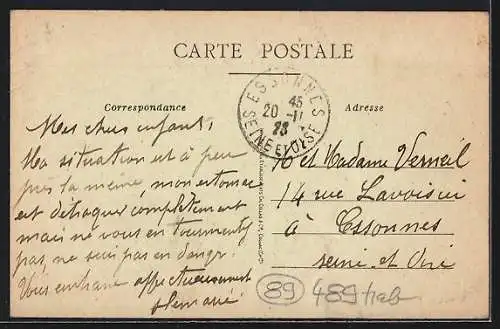 CARTE POSTALE
Correspondance
Adresse
ESSONNES
45
20 -11
23
SEINE ET OISE
Mes chers enfants
Ma situation est à peu
près la même, mon estomac
est détraqué complètement
mais ne vous en tourmentez
pas, ne suis pas en danger.
Vous embrasse affectueusement
et Madame Verneil
14 rue Lavoisier
à Essonnes
Seine et Oise
89 489